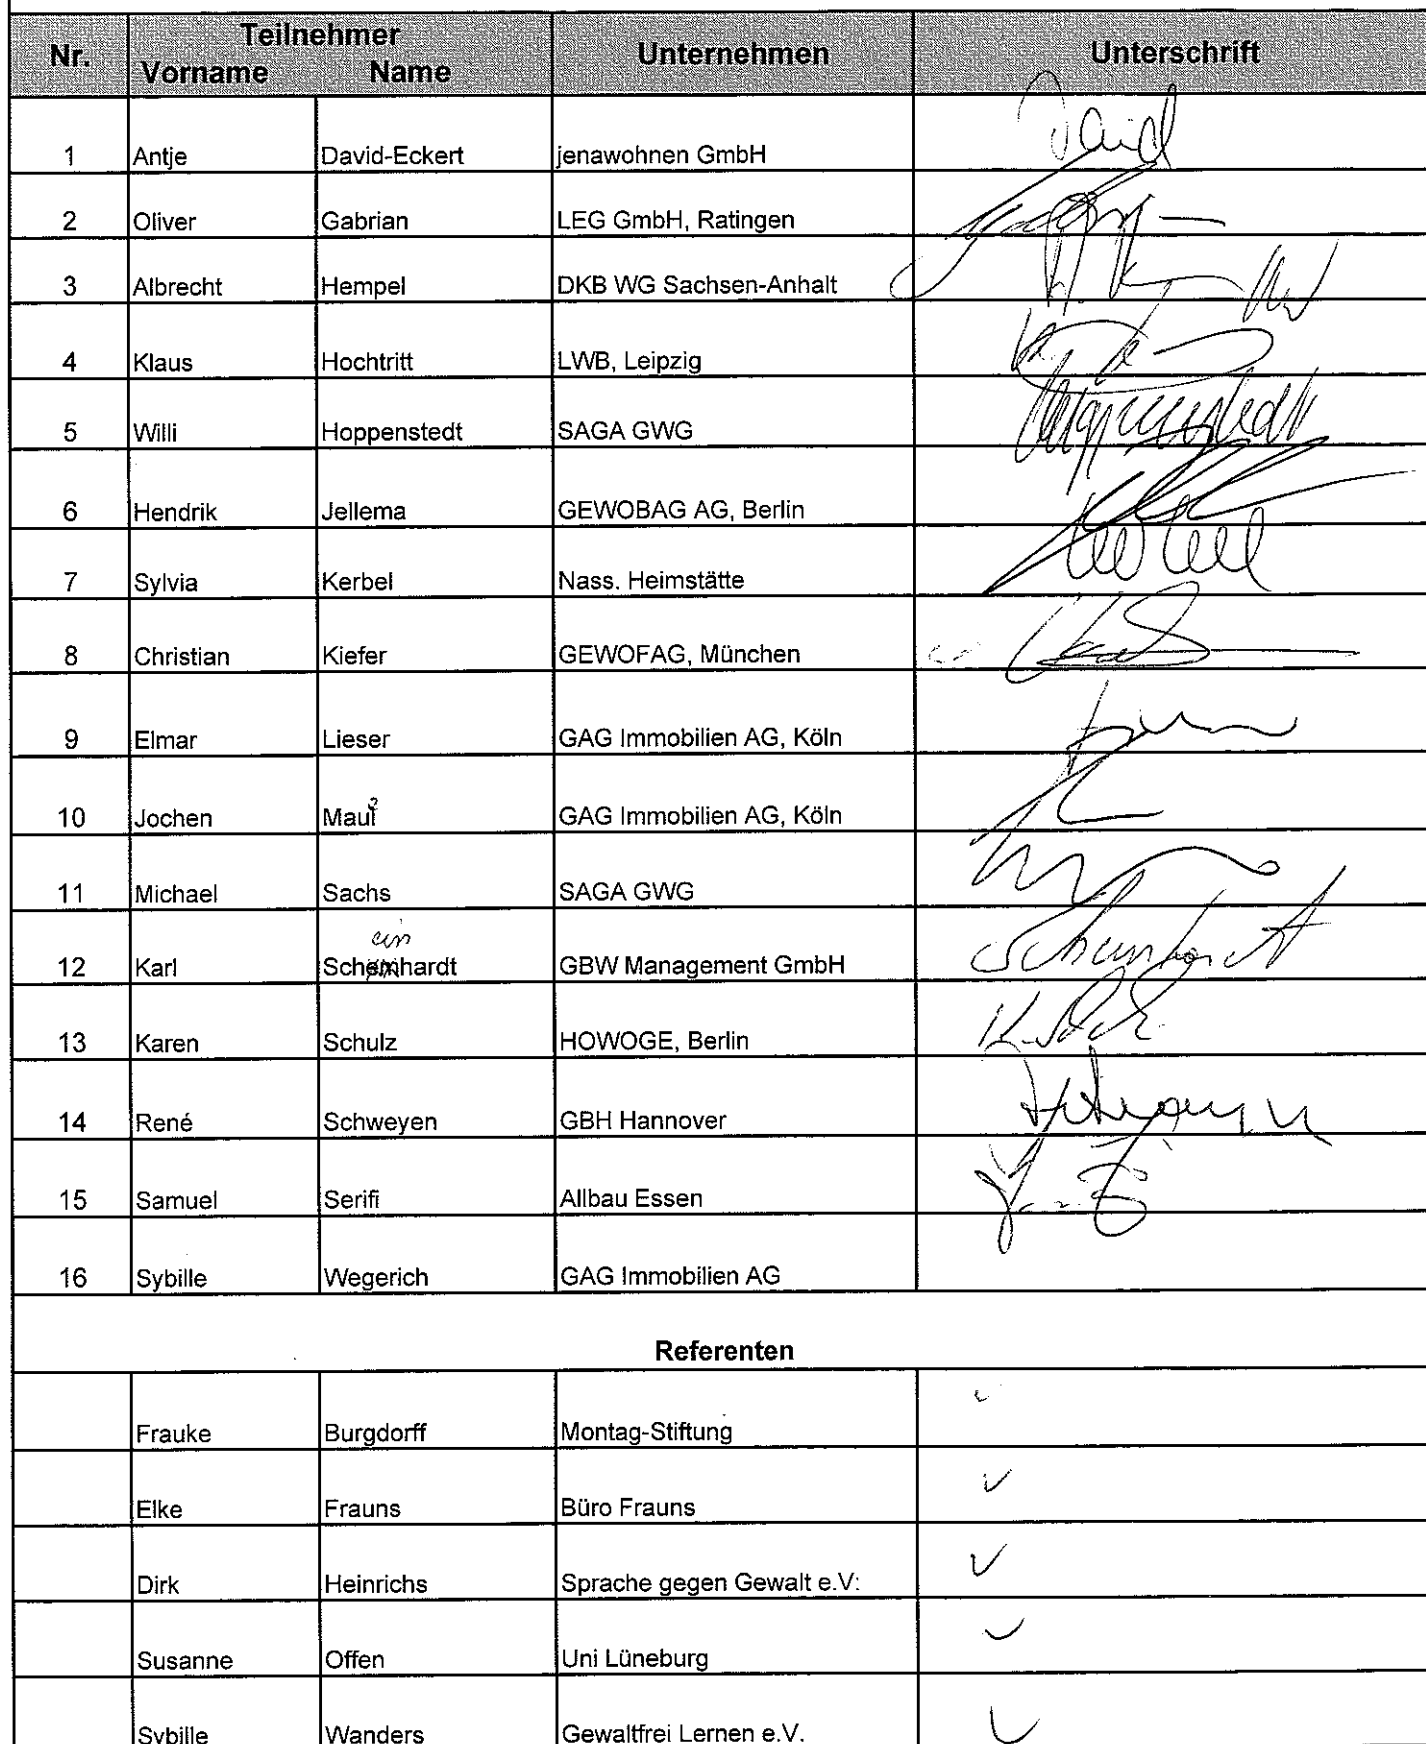 Nr. Teilnehmer Unternehmen Unterschrift
Vorname Name
1 Antje David-Eckert jenawohnen GmbH David
2 Oliver Gabrian LEG GmbH, Ratingen
3 Albrecht Hempel DKB WG Sachsen-Anhalt
4 Klaus Hochtritt LWB, Leipzig
5 Willi Hoppenstedt SAGA GWG Hoppenstedt
6 Hendrik Jellema GEWOBAG AG, Berlin
7 Sylvia Kerbel Nass. Heimstätte
8 Christian Kiefer GEWOFAG, München
9 Elmar Lieser GAG Immobilien AG, Köln
10 Jochen GAG Immobilien AG, Köln
11 Michael Sachs SAGA GWG
ein
12 Karl Schemhardt GBW Management GmbH Scheinhardt
13 Karen Schulz HOWOGE, Berlin
14 René Schweyen GBH Hannover
15 Samuel Serifi Allbau Essen
16 Sybille Wegerich GAG Immobilien AG
Referenten
Frauke Burgdorff Montag-Stiftung ✓
Elke Frauns Büro Frauns ✓
Dirk Heinrichs Sprache gegen Gewalt e.V: ✓
Susanne Offen Uni Lüneburg ✓
Sybille Wanders Gewaltfrei Lernen e.V. ✓